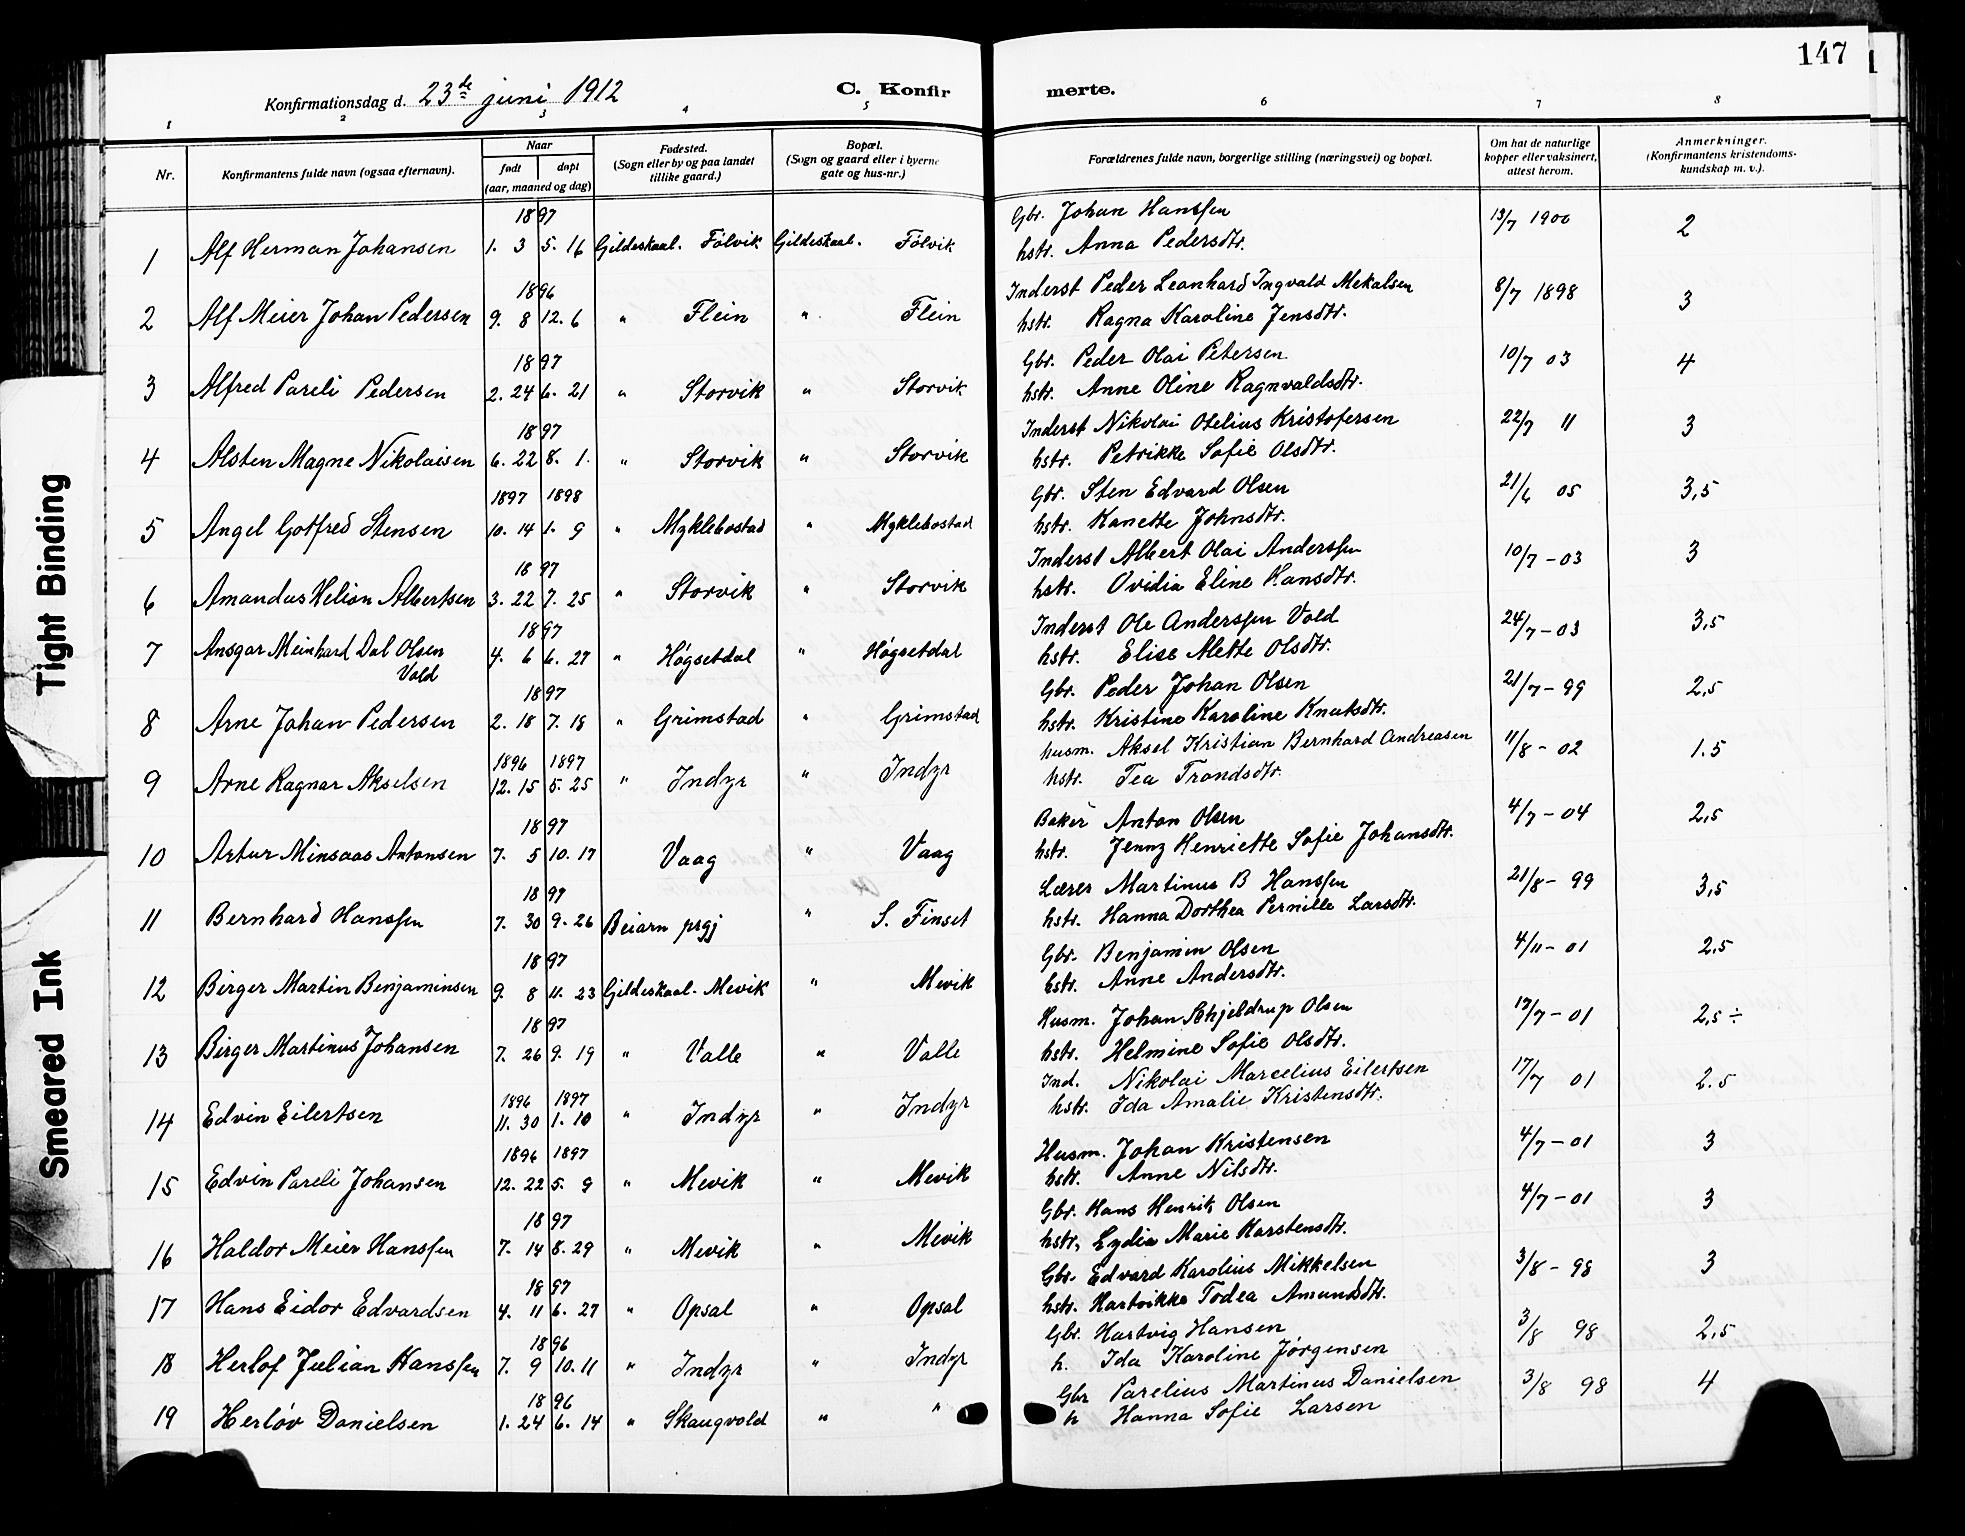 147
Konfirmationsdag d. 23de juni 1912
C. Konfirmerte.
1 2 3 4 5 6 7 8
Nr.
Konfirmantens fulde navn (ogsaa efternavn).
Naar
født døpt
(aar, maaned og dag)
Fødested.
(Sogn eller by og paa landet
tillike gaard.)
Bopæl.
(Sogn og gaard eller i byerne
gate og hus-nr.)
Forældrenes fulde navn, borgerlige stilling (næringsvei) og bopæl.
Om hat de naturlige
kopper eller vaksinert,
attest herom.
Anmerkninger.
(Konfirmantens kristendoms-
kundskap m. v.).
1897 Gbr. Johan Hanssen 13/7 1900 2
1 Alf Herman Johansen 1. 3 5. 16 Gildeskaal. Fölvik Gildeskaal. Fölvik hstr. Anna Pedersdtr.
1896 Inderst Peder Leonhard Ingvald Mekalsen 8/7 1898 3
2 Alf Meier Johan Pedersen 9. 8 12. 6 " Flein " Flein hstr. Ragna Karoline Jensdtr.
1897 Gbr. Peder Olai Petersen 10/7 03 4
3 Alfred Pareli Pedersen 2. 24 6. 21 " Storvik " Storvik hstr. Anne Oline Ragnvaldsdtr.
1897 Inderst Nikolai Otelius Kristofersen 22/7 11 3
4 Alsten Magne Nikolaisen 6. 22 8. 1. " Storvik " Storvik hstr. Petrikke Sofie Olsdtr.
1897 1898 Gbr. Sten Edvard Olsen 21/6 05 3,5
5 Angel Gotfred Stensen 10. 14 1. 9 " Myklebostad " Myklebostad hstr. Kanette Johnsdtr.
1897 Inderst Albert Olai Anderssen 10/7 - 03 3
6 Amandus Helion Albertsen 3. 22 7. 25 " Storvik " Storvik hstr. Ovidia Eline Hansdtr.
1897 Inderst Ole Anderssen Vold 24/7 - 03 3,5
7 Ansgar Meinhard Dal Olsen 4. 6 6. 27 " Høgsetdal " Høgsetdal hstr. Elise Mette Olsdtr.
Vold
1897 Gbr. Peder Johan Olsen 21/7 - 99 2,5
8 Arne Johan Pedersen 2. 18 7. 18 " Grimstad " Grimstad hstr. Kristine Karoline Knutsdtr.
1896 1897 husm. Aksel Kristian Bernhard Andreasen 11/8 - 02 1.5
9 Arne Ragnar Akselsen 12. 15 5. 25 " Indyr " Indyr hstr. Tea Trondsdtr.
1897 Baker Anton Olsen 4/7 - 04 2,5
10 Artur Minsaas Antonsen 7. 5 10. 17 Vaag " Vaag hstr. Jenny Henriette Sofie Johansdtr.
1897 Lærer Martinus B Hanssen 21/8 - 99 3,5
11 Bernhard Hanssen 7. 30 9. 26 Beiarn prgj " S. Finset hstr. Hanna Dorthea Pernille Larsdtr.
1897 Gbr. Benjamin Olsen 4/11 - 01 2.5
12 Birger Martin Benjaminsen 9. 8 11. 23 Gildeskaal. Mevik " Mevik hstr. Anne Andersdtr.
1897 Husm. Johan Schjeldrup Olsen 17/7 - 01 2,5 ÷
13 Birger Martinus Johansen 7. 26 9. 19 " Valle " Valle hstr. Helmine Sofie Olsdtr.
1896 1897 Ind. Nikolai Marcelius Eilertsen 17/7 01 2.5
14 Edvin Eilertsen 11. 30 1. 10 " Indyr " Indyr hstr. Ida Amalie Kristensdtr.
1896 1897 Husm. Johan Kristensen 4/7 - 01 3
15 Edvin Pareli Johansen 12. 22 5. 9 " Mevik " Mevik hstr. Anne Nilsdtr.
1897 Gbr. Hans Henrik Olsen 4/7 - 01 3
16 Haldor Meier Hanssen 7. 14 8. 29 " Mevik " Mevik hstr. Lydia Marie Karstensdtr.
1897 Gbr. Edvard Karolius Mikkelsen 3/8 - 98 3
17 Hans Eidor Edvardsen 4. 11 6. 27 " Opsal " Opsal hstr. Hartvikka Todea Amundsdtr.
1896 Gbr. Hartvig Hansen 3/8 98 2,5
18 Herlof Julian Hanssen 7. 9 10. 11 " Indyr " Indyr h. Ida Karoline Jørgensen
1896 Gbr Parelius Martinus Danielsen 3/8 98 4
19 Herløv Danielsen 1. 24 6. 14 " Skaugvold " " h Hanna Sofie Larsen
Tight Binding
Smeared Ink